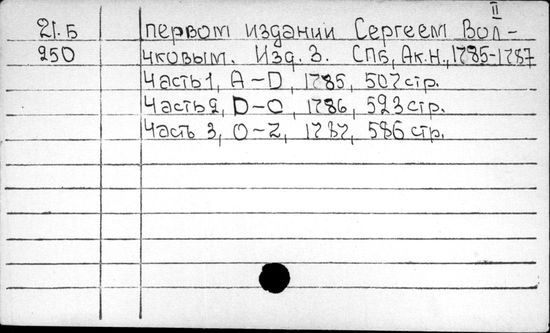 II
21.5 первом издании Сергеем Вол-
250 чковым. Изд. 3. СПБ, Ак.Н., 1785-1787
Часть 1, A-D, 1785, 507 стр.
Часть 2, D-O, 1786, 523 стр.
Часть 3, O-Z, 1787, 586 стр.